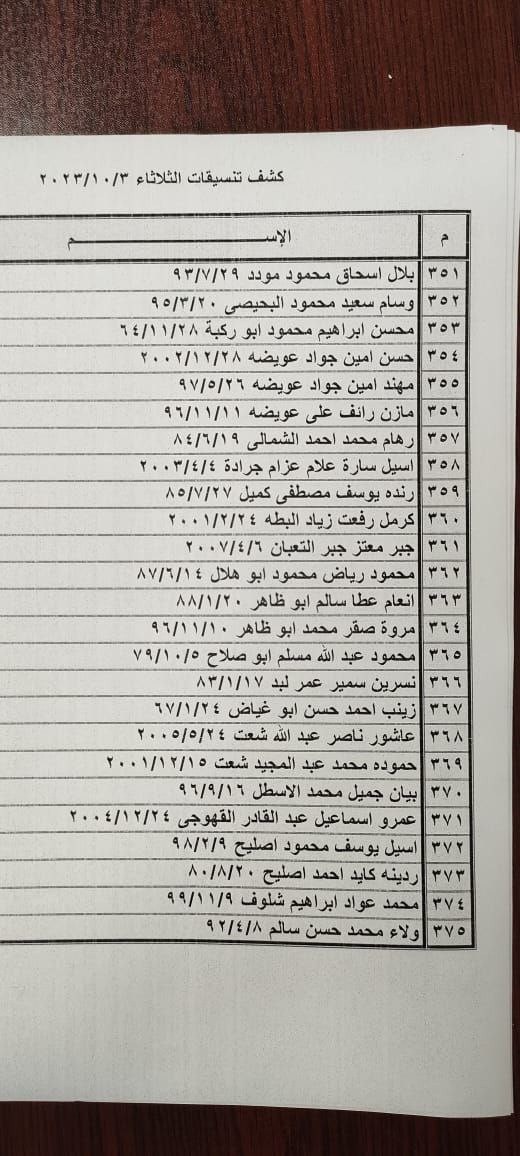 كشف تنسيقات الثلاثاء ٢٠٢٣/١٠/٣
م الإســـــــــــــــــــــــــم
٣٥١ بلال اسحاق محمود مودد ٩٣/٧/٢٩
٣٥٢ وسام سعيد محمود البحيصى ٩٥/٣/٢٠
٣٥٣ محسن ابراهيم محمود ابو ركبة ٦٤/١١/٢٨
٣٥٤ حسن امين جواد عويضه ٢٠٠٢/١٢/٢٨
٣٥٥ مهند امين جواد عويضه ٩٧/٥/٢٦
٣٥٦ مازن رائف على عويضه ٩٦/١١/١١
٣٥٧ رهام محمد احمد الشمالى ٨٤/٦/١٩
٣٥٨ اسيل سارة علام عزام جرادة ٢٠٠٣/٤/٤
٣٥٩ رنده يوسف مصطفى كميل ٨٥/٧/٢٧
٣٦٠ كرمل رفعت زياد البطه ٢٠٠١/٢/٢٤
٣٦١ جبر معتز جبر التعبان ٢٠٠٧/٤/٦
٣٦٢ محمود رياض محمود ابو هلال ٨٧/٦/١٤
٣٦٣ انعام عطا سالم ابو ظاهر ٨٨/١/٢٠
٣٦٤ مروة صقر محمد ابو ظاهر ٩٦/١١/١٠
٣٦٥ محمود عبد الله مسلم ابو صلاح ٧٩/١٠/٥
٣٦٦ نسرين سمير عمر لبد ٨٣/١/١٧
٣٦٧ زينب احمد حسن ابو غياض ٦٧/١/٢٤
٣٦٨ عاشور ناصر عبد الله شعت ٢٠٠٥/٥/٢٤
٣٦٩ حموده محمد عبد المجيد شعت ٢٠٠١/١٢/١٥
٣٧٠ بيان جميل محمد الاسطل ٩٦/٩/١٦
٣٧١ عمرو اسماعيل عبد القادر القهوجى ٢٠٠٤/١٢/٢٤
٣٧٢ اسيل يوسف محمود اصليح ٩٨/٢/٩
٣٧٣ ردينه كايد احمد اصليح ٨٠/٨/٢٠
٣٧٤ محمد عواد ابراهيم شلوف ٩٩/١١/٩
٣٧٥ ولاء محمد حسن سالم ٩٢/٤/٨